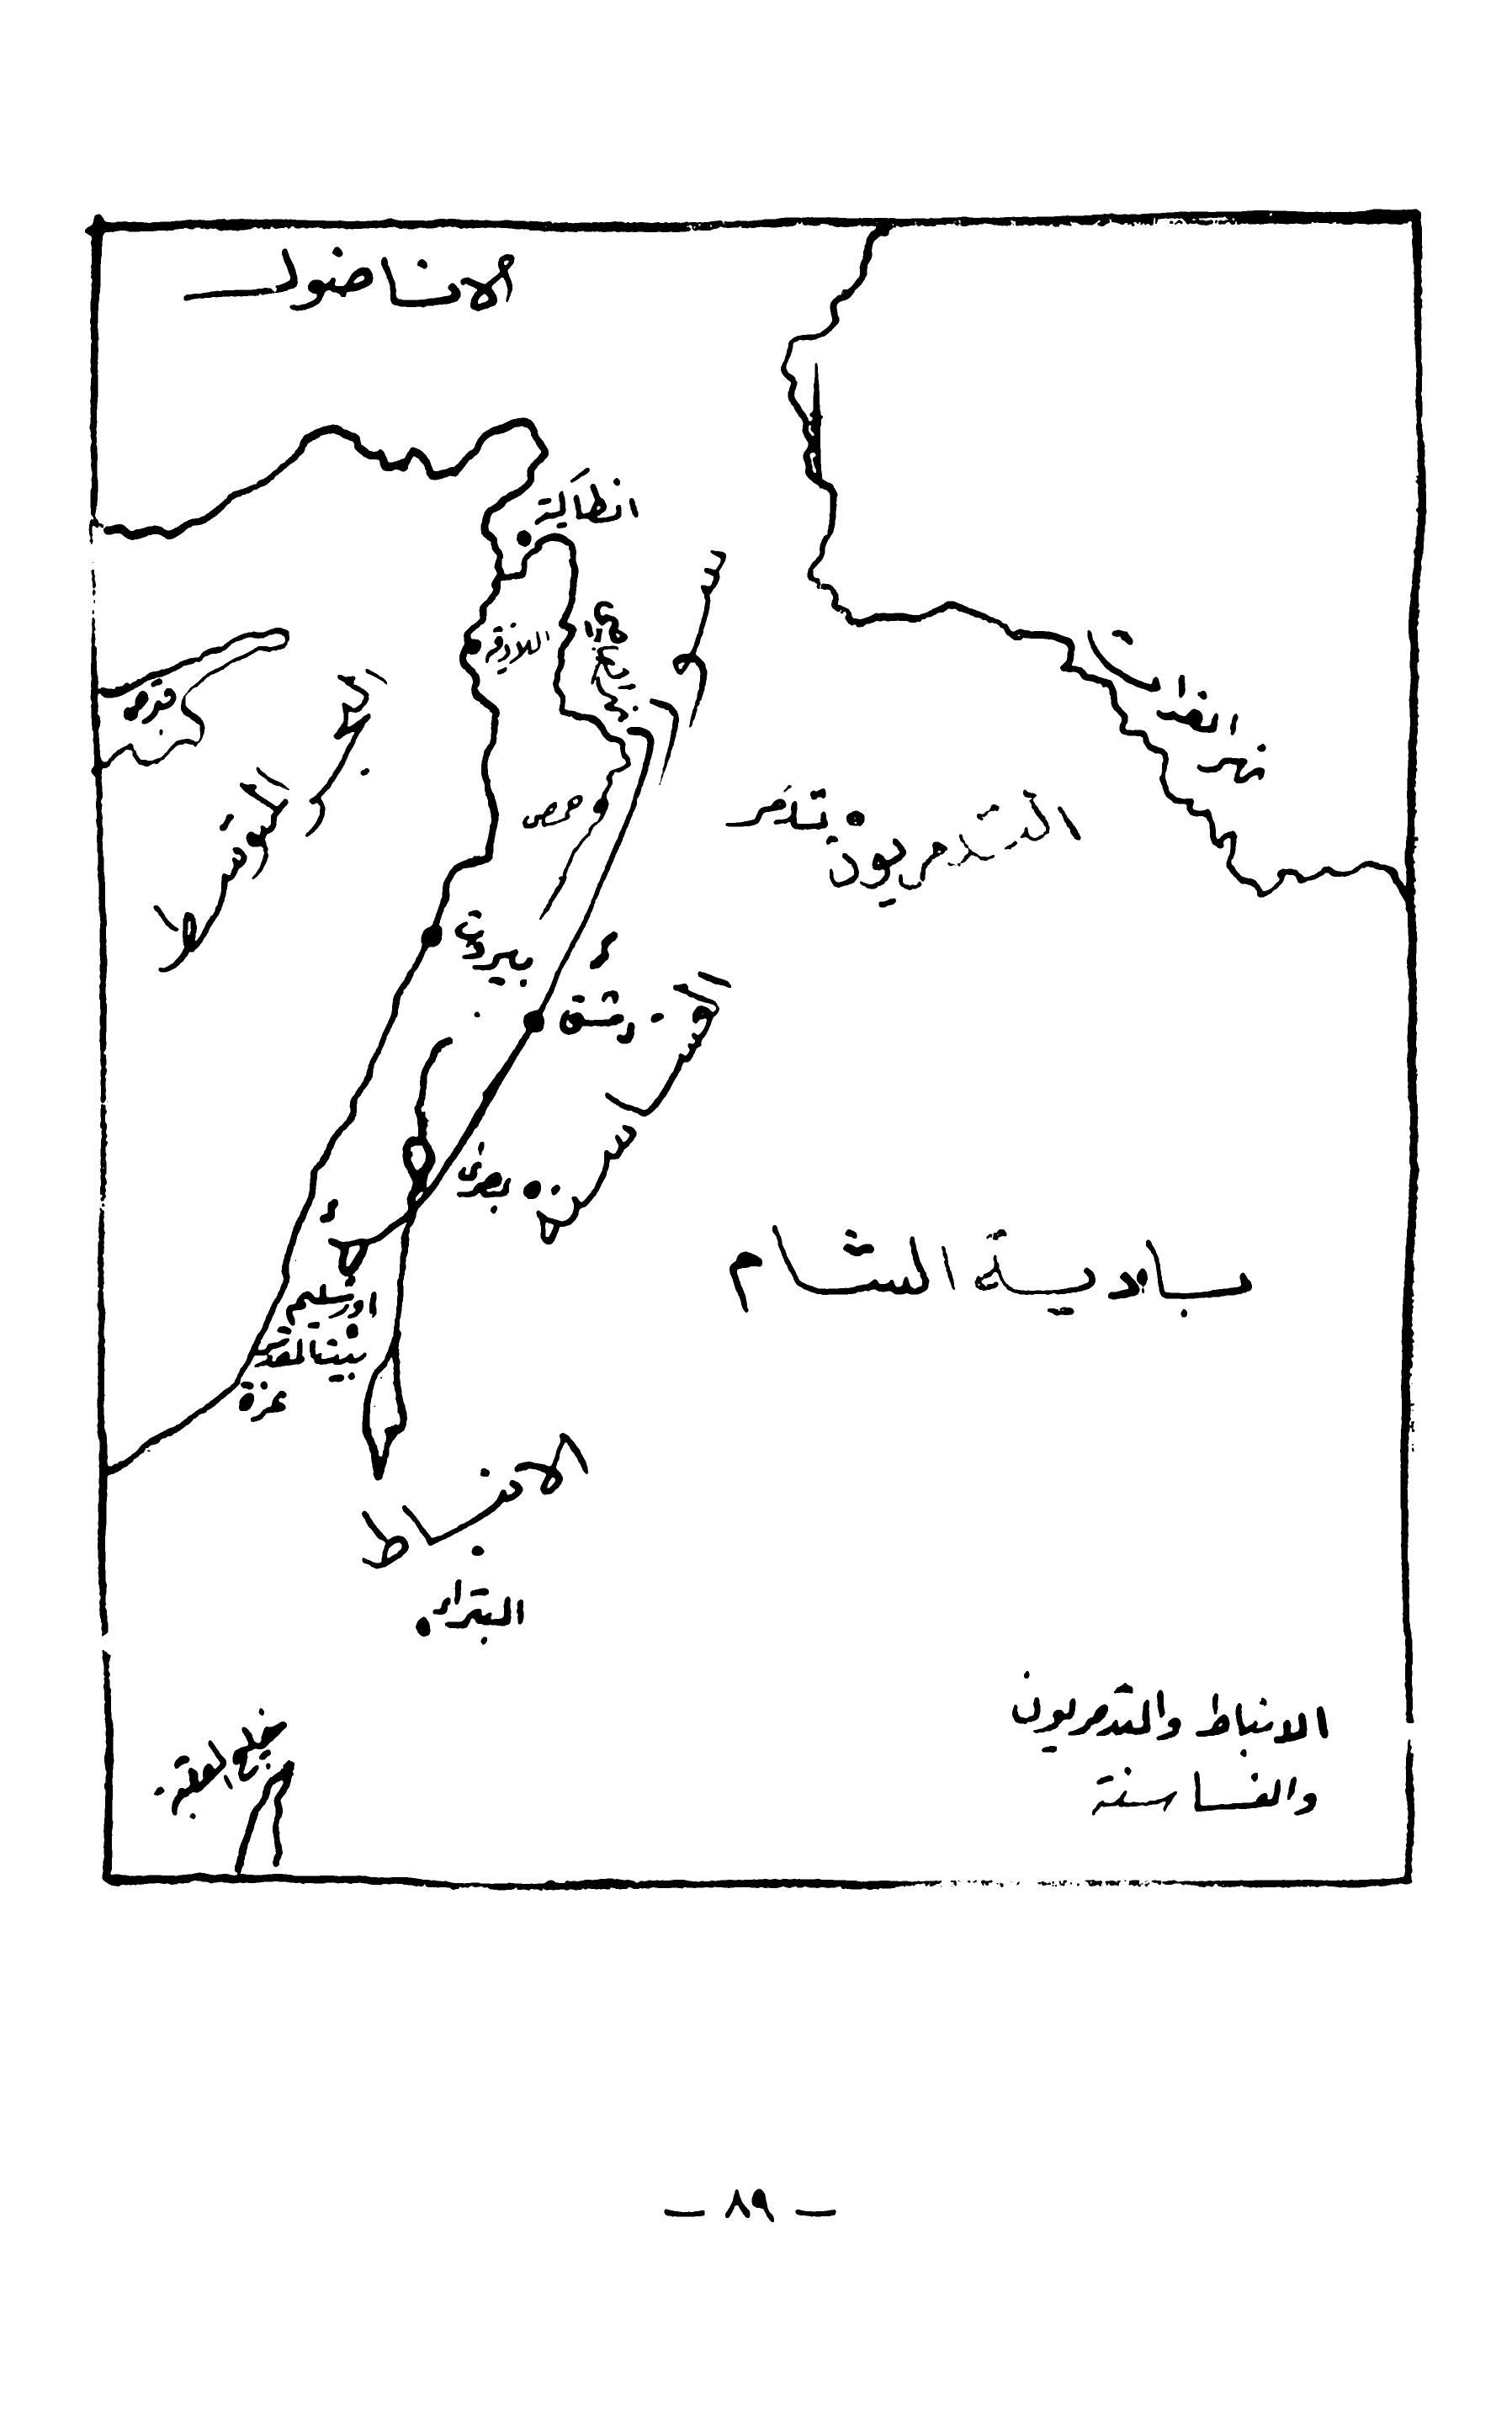 الاناضول
انطاكية
اللاذقية
قبرص
نهر الفرات
حمص
تدمر
التدمريون
بيروت
دمشق
بصرى
بادية الشام
اورشليم
بيت المقدس
غزة
الانباط
البتراء
خليج العقبة
الانباط والتدمريون
والغساسنة
— ٨٩ —